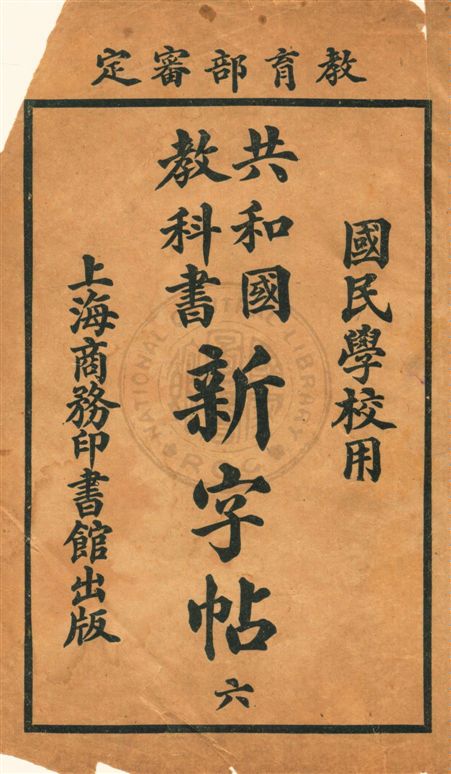 教育部審定
國民學校用
共和國
教科書
新字帖
六
上海商務印書館出版
NATIONAL CENTRAL LIBRARY